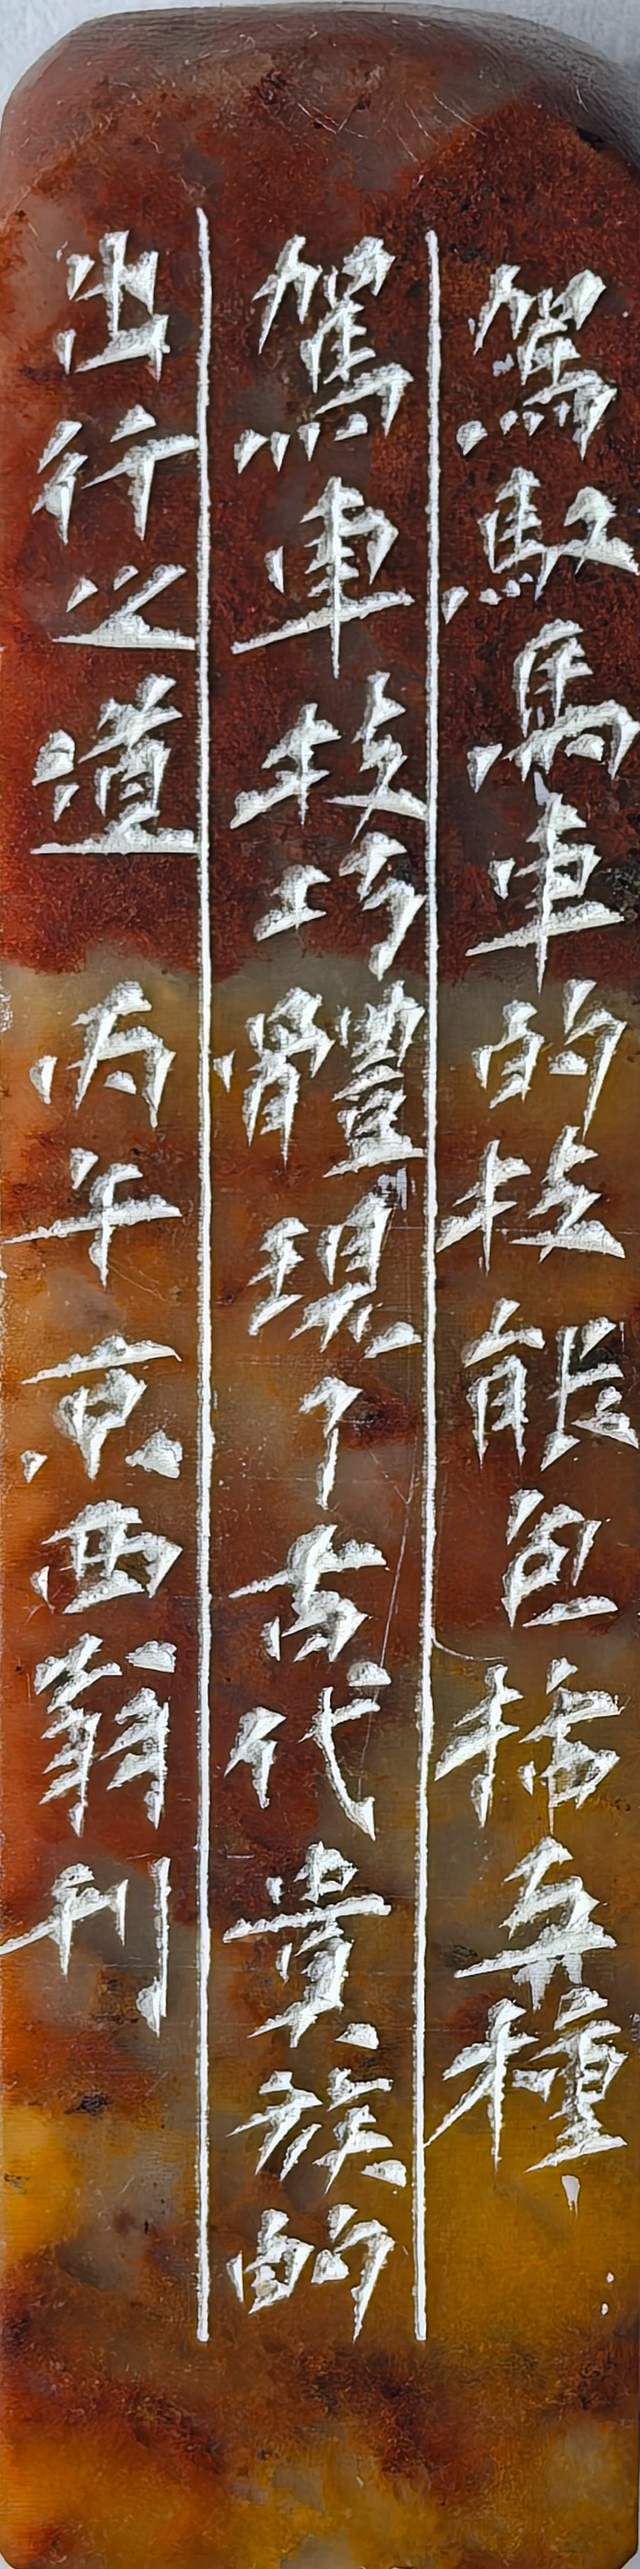 駕馭馬車的技能包括五種
駕車技巧體現了古代貴族的
出行之道 丙午京西翁刊